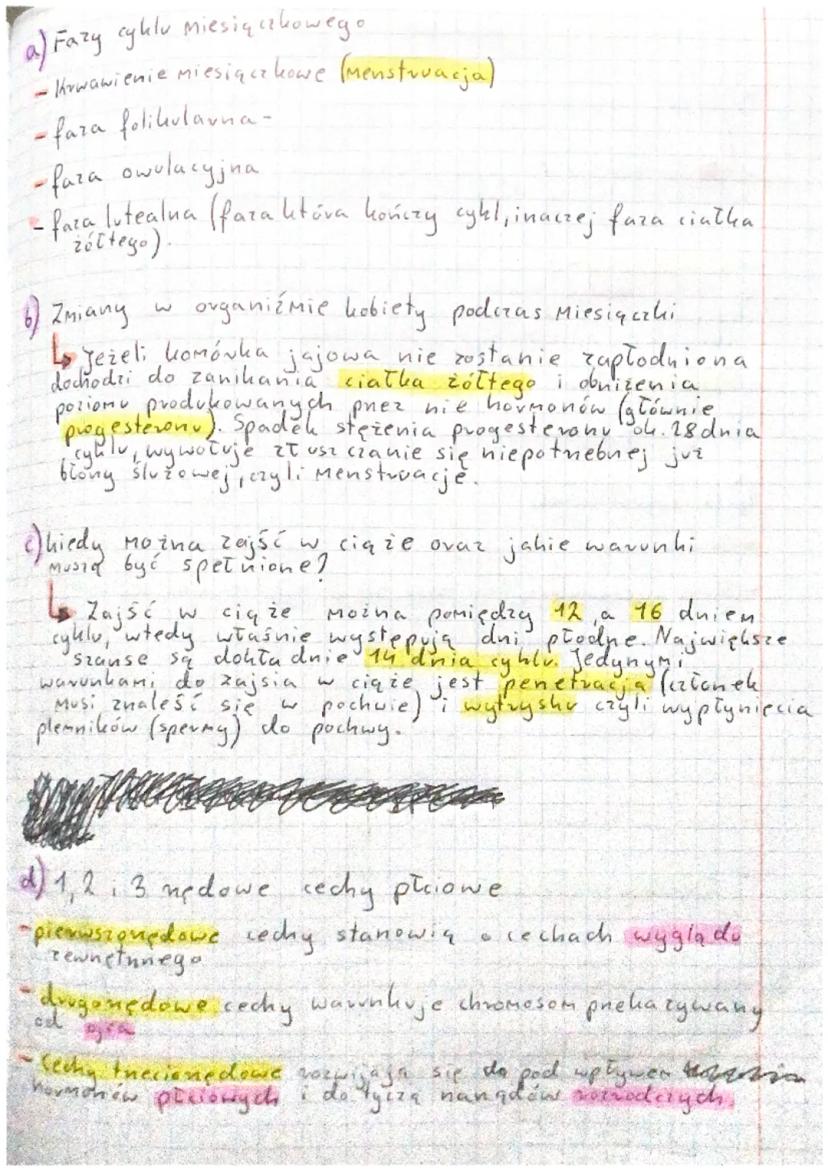 a) Fazy cyklu miesiączkowego
- Krwawienie miesiączkowe (menstruacja)
- faza folikularna -
- faza owulacyjna
- faza lutealna (faza która kończy cykl, inaczej faza ciałka
żółtego).
b) Zmiany w organiźmie kobiety podczas miesiączki
↳ Jeżeli komórka jajowa nie zostanie zapłodniona
dochodzi do zanikania ciałka żółtego i obniżenia
poziomu produkowanych przez nie hormonów (głównie
progesteronu). Spadek stężenia progesteronu ok. 28 dnia
cyklu, wywołuje złuszczanie się niepotrzebnej już
błony śluzowej, czyli menstruacje.
c) kiedy można zajść w ciąże oraz jakie warunki
muszą być spełnione?
↳ Zajść w ciąże można pomiędzy 12, a 16 dniem
cyklu, wtedy właśnie występują dni płodne. Największe
szanse są dokładnie 14 dnia cyklu. Jedynymi
warunkami do zajsia w ciąże jest penetracja (członek
musi znaleść się w pochwie) i wytrysku czyli wypłynięcia
plemników (spermy) do pochwy.
d) 1, 2 i 3 rzędowe cechy płciowe
- pierwszorzędowe cechy stanowią o cechach wyglądu
zewnętrznego
- drugorzędowe cechy warunkuje chromosom przekazywany
od ojca
- Cechy trzeciorzędowe rozwijają się do pod wpływem
hormonów płciowych i dotyczą narządów rozrodczych.